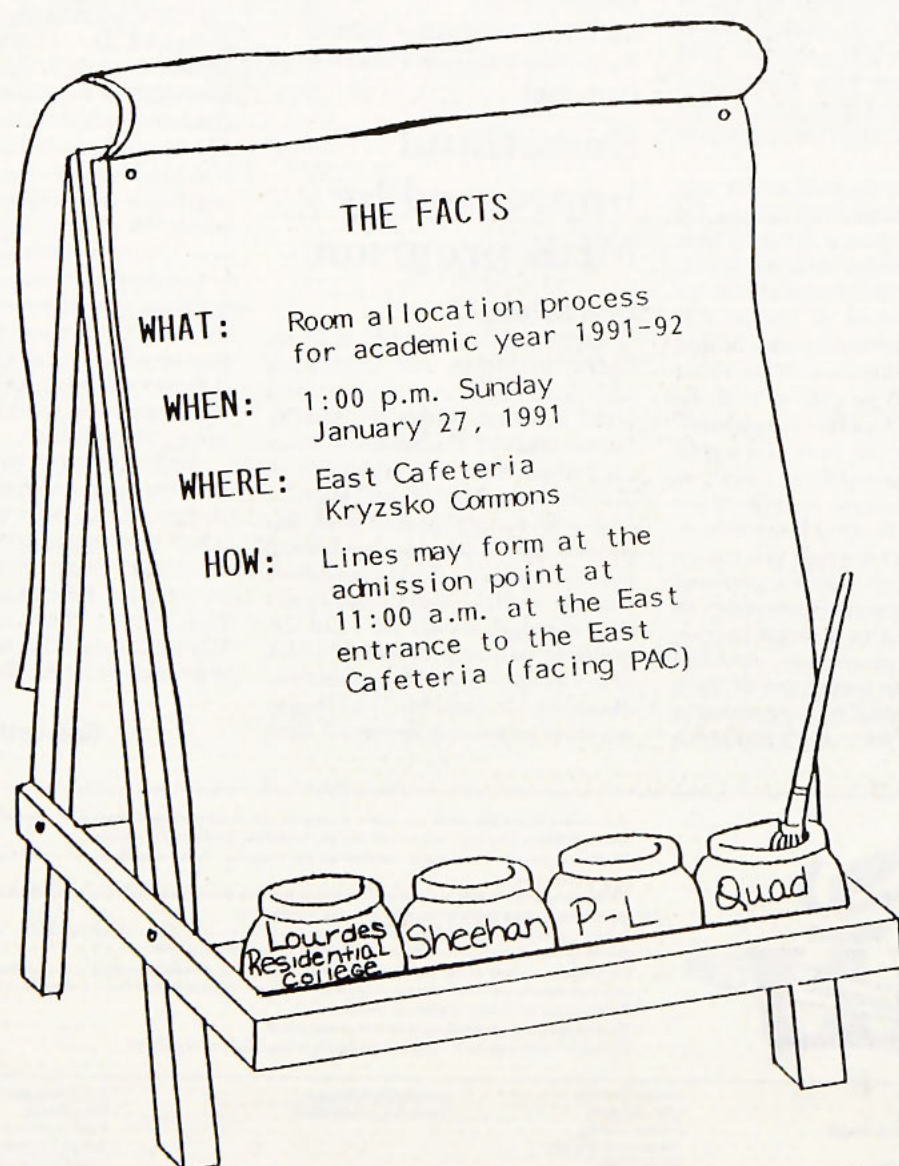 THE FACTS
WHAT: Room allocation process
for academic year 1991-92
WHEN: 1:00 p.m. Sunday
January 27, 1991
WHERE: East Cafeteria
Kryzsko Commons
HOW: Lines may form at the
admission point at
11:00 a.m. at the East
entrance to the East
Cafeteria (facing PAC)
Lourdes
Residential
College
Sheehan
P-L
Quad